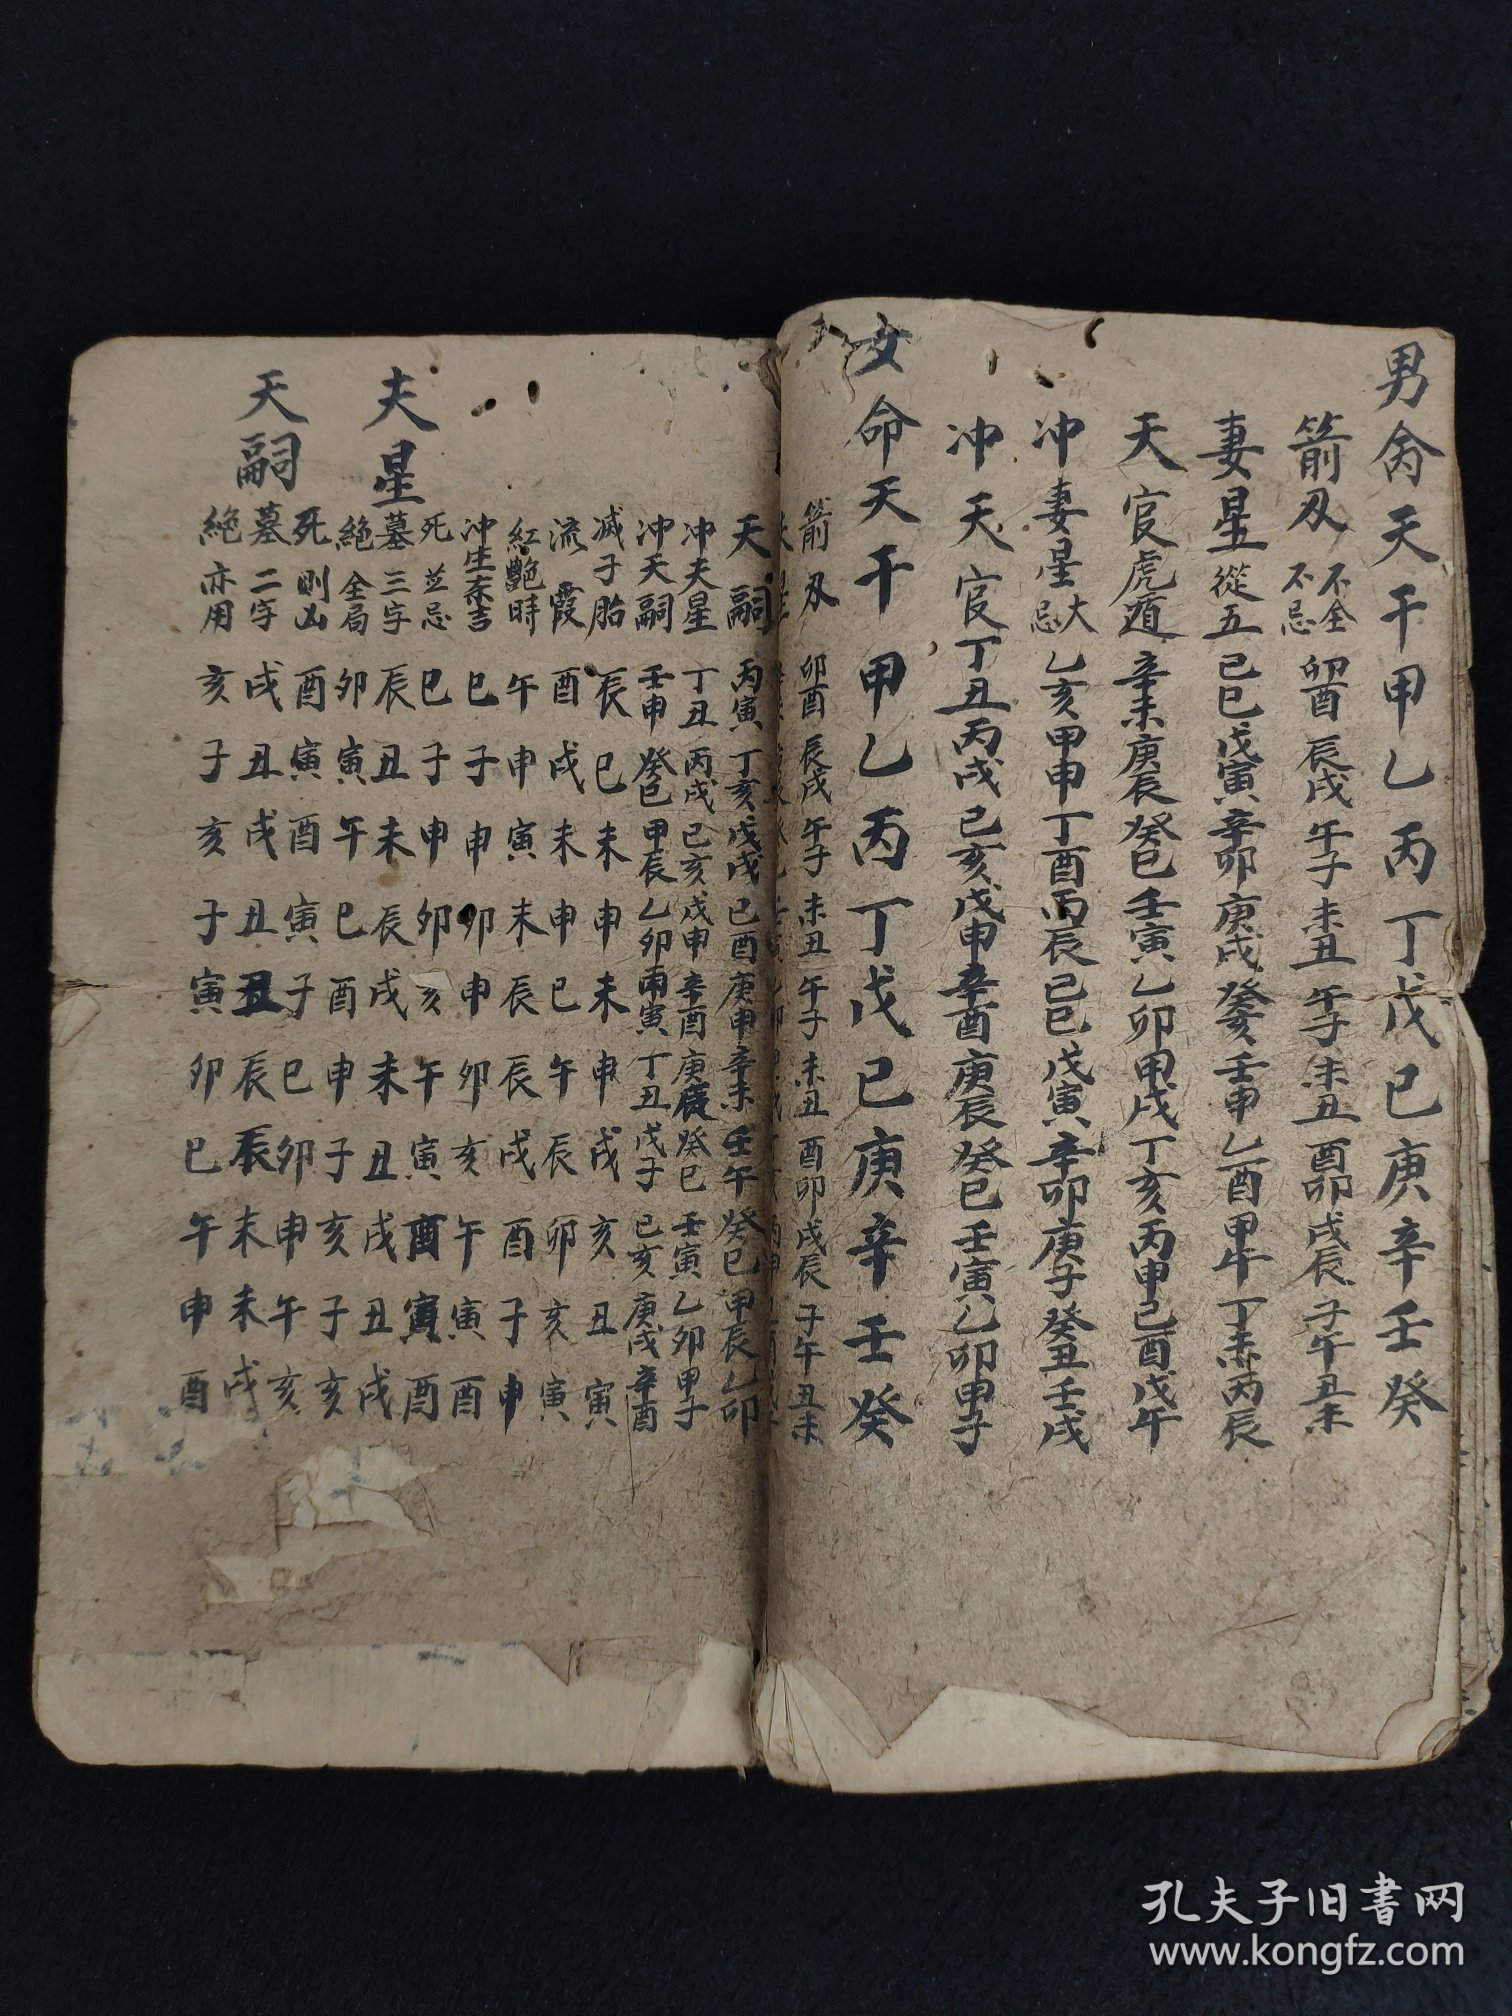 男命天干甲乙丙丁戊己庚辛壬癸
箭刃不全不忌卯酉辰戌午子未丑午子未丑酉卯戌辰子午丑未
妻星從五己巳戊寅辛卯庚戌癸亥壬申乙酉甲午丁未丙辰
天官虎遁辛未庚辰癸巳壬寅乙卯甲戌丁亥丙申己酉戊午
冲妻星大忌乙亥甲申丁酉丙辰己巳戊寅辛卯庚子癸丑壬戌
冲天官丁丑丙戌己亥戊申辛酉庚辰癸巳壬寅乙卯甲子
女命天干甲乙丙丁戊己庚辛壬癸
箭刃卯酉辰戌午子未丑午子未丑酉卯戌辰子午丑未
天嗣丙寅丁亥戊戌己酉庚申辛未壬午癸巳甲辰乙卯
冲夫星丁丑丙戌己亥戊申辛酉庚辰癸巳壬寅乙卯甲子
冲天嗣壬申癸巳甲辰乙卯丙寅丁丑戊子己亥庚戌辛酉
滅子胎辰巳未申未申戌亥丑寅
流霞酉戌未申巳午辰卯亥寅
紅艷時午申寅未辰辰戌酉子申
冲生東吉巳子申卯申卯亥午寅酉
夫星
死並忌巳子申卯亥午寅酉寅酉
墓三字辰丑未辰戌未丑戌丑戌
絶全局卯寅午巳酉申子亥子亥
天嗣
死則凶酉寅酉寅子巳卯申午亥
墓二字戌丑戌丑丑辰辰未未戌
絶亦用亥子亥子寅卯巳午申酉
孔夫子旧書网
www.kongfz.com